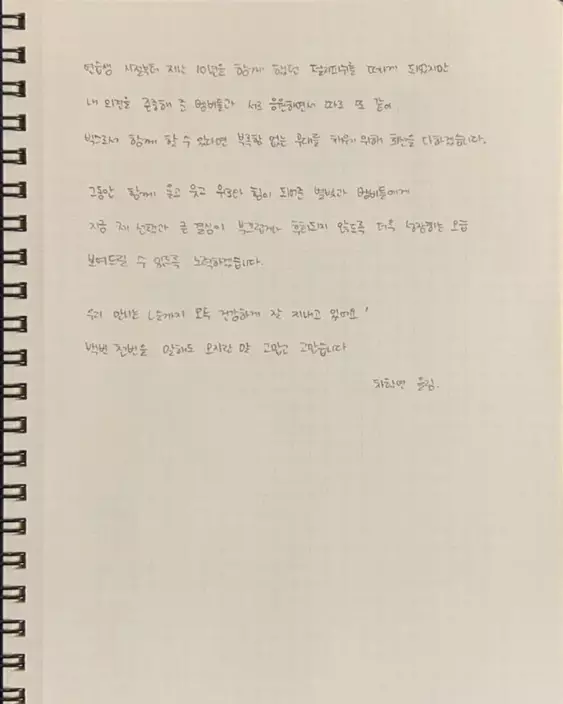 연습생 시절부터 지난 10년을 함께 했던 젤리피쉬를 떠나게 되었지만
내 의견을 존중해 준 멤버들과 서로 응원하면서 따로 또 같이
빅스로서 함께 할 수 있다면 부족함 없는 무대를 위해 최선을 다하겠습니다.
그동안 함께 울고 웃고 위로와 힘이 되어준 별빛과 멤버들에게
지금 제 선택과 큰 결심이 부끄럽거나 후회되지 않도록 더욱 성장하는 모습
보여드릴 수 있도록 노력하겠습니다.
우리 만나는 순간까지 모두 건강하게 잘 지내고 있어요!
백번 천번을 말해도 모자란 말 고맙고 고맙습니다
차학연 올림.